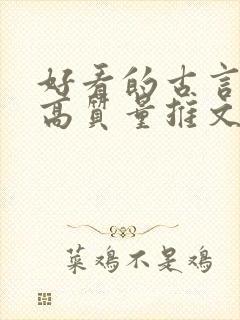 好看的古言
高质量推文
菜鸡不是鸡